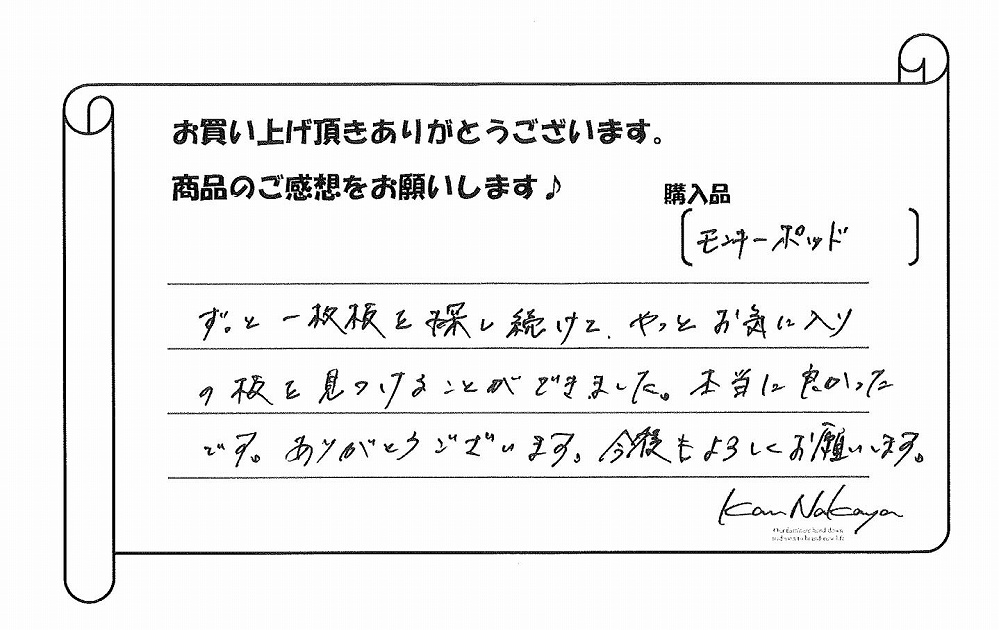 お買い上げ頂きありがとうございます。
商品のご感想をお願いします♪
購入品
モンキーポッド
ずっと一枚板を探し続けて、やっとお気に入り
の板を見つけることができました。本当に良かった
です。ありがとうございます。今後もよろしくお願いします。
Kan Nakaya